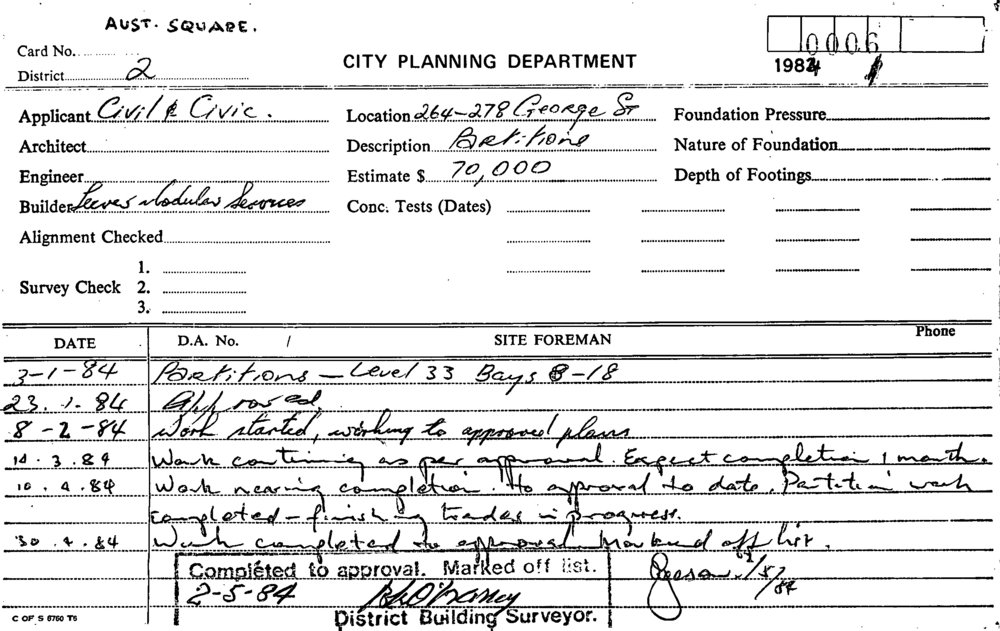 AUST. SQUARE.
Card No.
0006
District 2
CITY PLANNING DEPARTMENT
1984
Applicant Civil & Civic.
Location 264-278 George St
Foundation Pressure
Architect
Description Partitions
Nature of Foundation
Engineer
Estimate $ 70,000
Depth of Footings
Builder Modular Services
Conc. Tests (Dates)
Alignment Checked
1.
Survey Check 2.
3.
DATE D.A. No. / SITE FOREMAN Phone
3-1-84 Partitions - Level 33 Bays 8-18
23.1.84 Approved
8-2-84 Work started, working to approved plans
14.3.84 Work continuing as per approval. Expect completion 1 month.
10.4.84 Work nearing completion. to approval to date. Partition work
completed - finishing trades in progress.
30.4.84 Work completed to approval. Marked off list.
Completed to approval. Marked off list.
2-5-84
1/5/84
District Building Surveyor.
C OF S 6760 T6